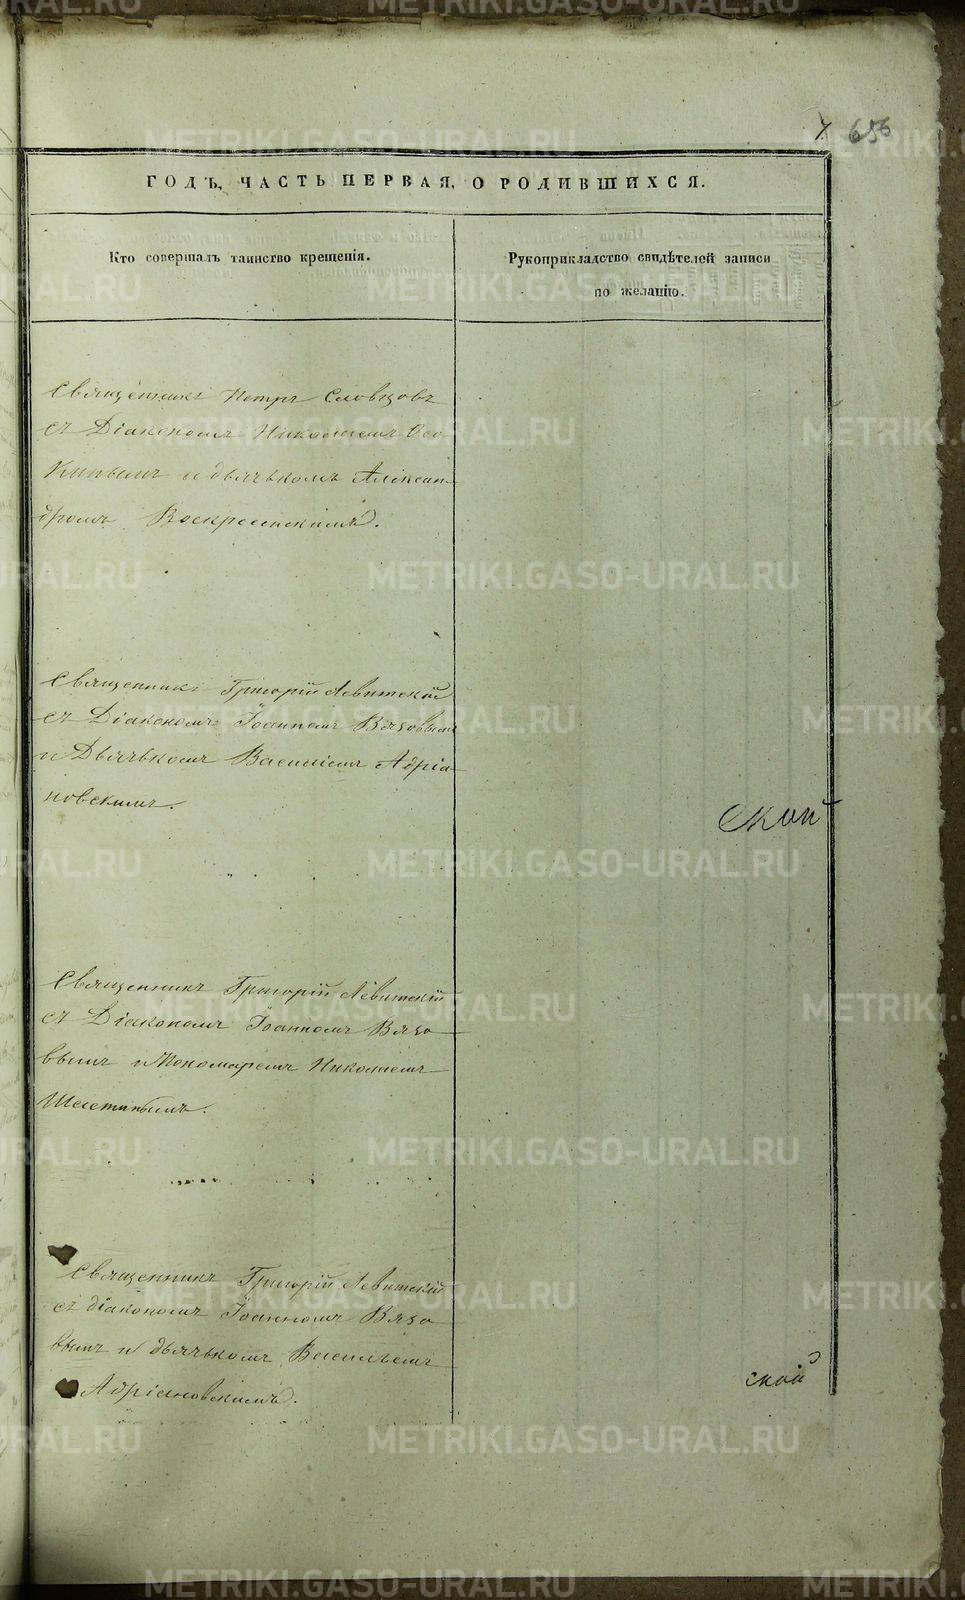 7. 656
ГОДЪ, ЧАСТЬ ПЕРВАЯ, О РОДИВШИХСЯ.
Кто совершалъ таинство крещенія.
Рукоприкладство свидѣтелей записи
по желанію.
Священникъ Петръ Словцовъ
съ Діакономъ Николаемъ Осо-
кинымъ и дьячькомъ Алексан-
дромъ Воскресенскимъ.
Священникъ Григорій Левитской
съ Діакономъ Іоанномъ Вязовымъ
и Дьячькомъ Василіемъ Адріа-
новскимъ.
ской
Священникъ Григорій Левитскій
съ Діакономъ Іоанномъ Вязо
вымъ и Пономаремъ Николаемъ
Шелетинымъ.
Священникъ Григорій Левитскій
съ діакономъ Іоанномъ Вязо
вымъ и дьячькомъ Васильемъ
Адріановскимъ.
ской
METRIKI.GASO-URAL.RU